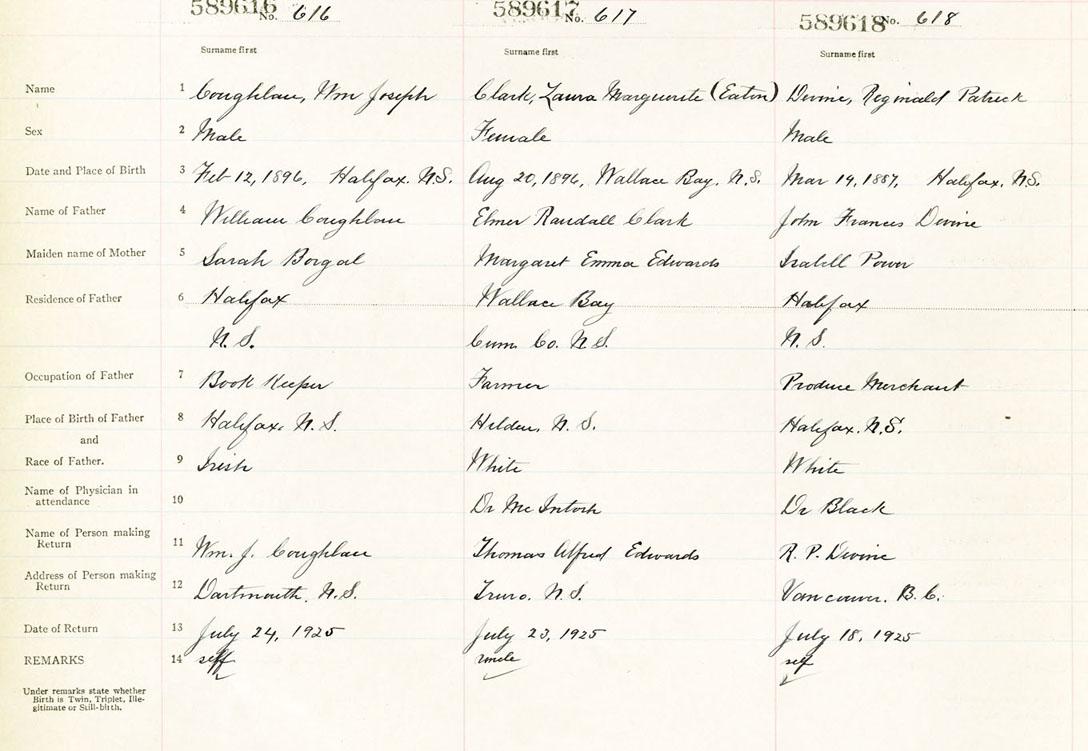 589616 No. 616 589617 No. 617 589618 No. 618
Surname first Surname first Surname first
Name 1 Coughlan, Wm Joseph Clark, Laura Marguerite (Eaton) Devine, Reginald Patrick
Sex 2 Male Female Male
Date and Place of Birth 3 Feb 12, 1896, Halifax. N.S. Aug 20, 1896, Wallace Bay, N.S. Mar 19, 1887, Halifax, N.S.
Name of Father 4 William Coughlan Elmer Randall Clark John Francis Devine
Maiden name of Mother 5 Sarah Borgal Margaret Emma Edwards Isabell Power
Residence of Father 6 Halifax Wallace Bay Halifax
N.S. Cum. Co. N.S. N.S.
Occupation of Father 7 Book Keeper Farmer Produce Merchant
Place of Birth of Father 8 Halifax. N.S. Hilden, N.S. Halifax. N.S.
and
Race of Father. 9 Irish White White
Name of Physician in
attendance 10 Dr McIntosh Dr Black
Name of Person making
Return 11 Wm. J. Coughlan Thomas Alfred Edwards R. P. Devine
Address of Person making
Return 12 Dartmouth, N.S. Truro. N.S. Vancouver. B.C.
Date of Return 13 July 24, 1925 July 23, 1925 July 18, 1925
REMARKS 14 self uncle self
Under remarks state whether
Birth is Twin, Triplet, Ille-
gitimate or Still-birth.